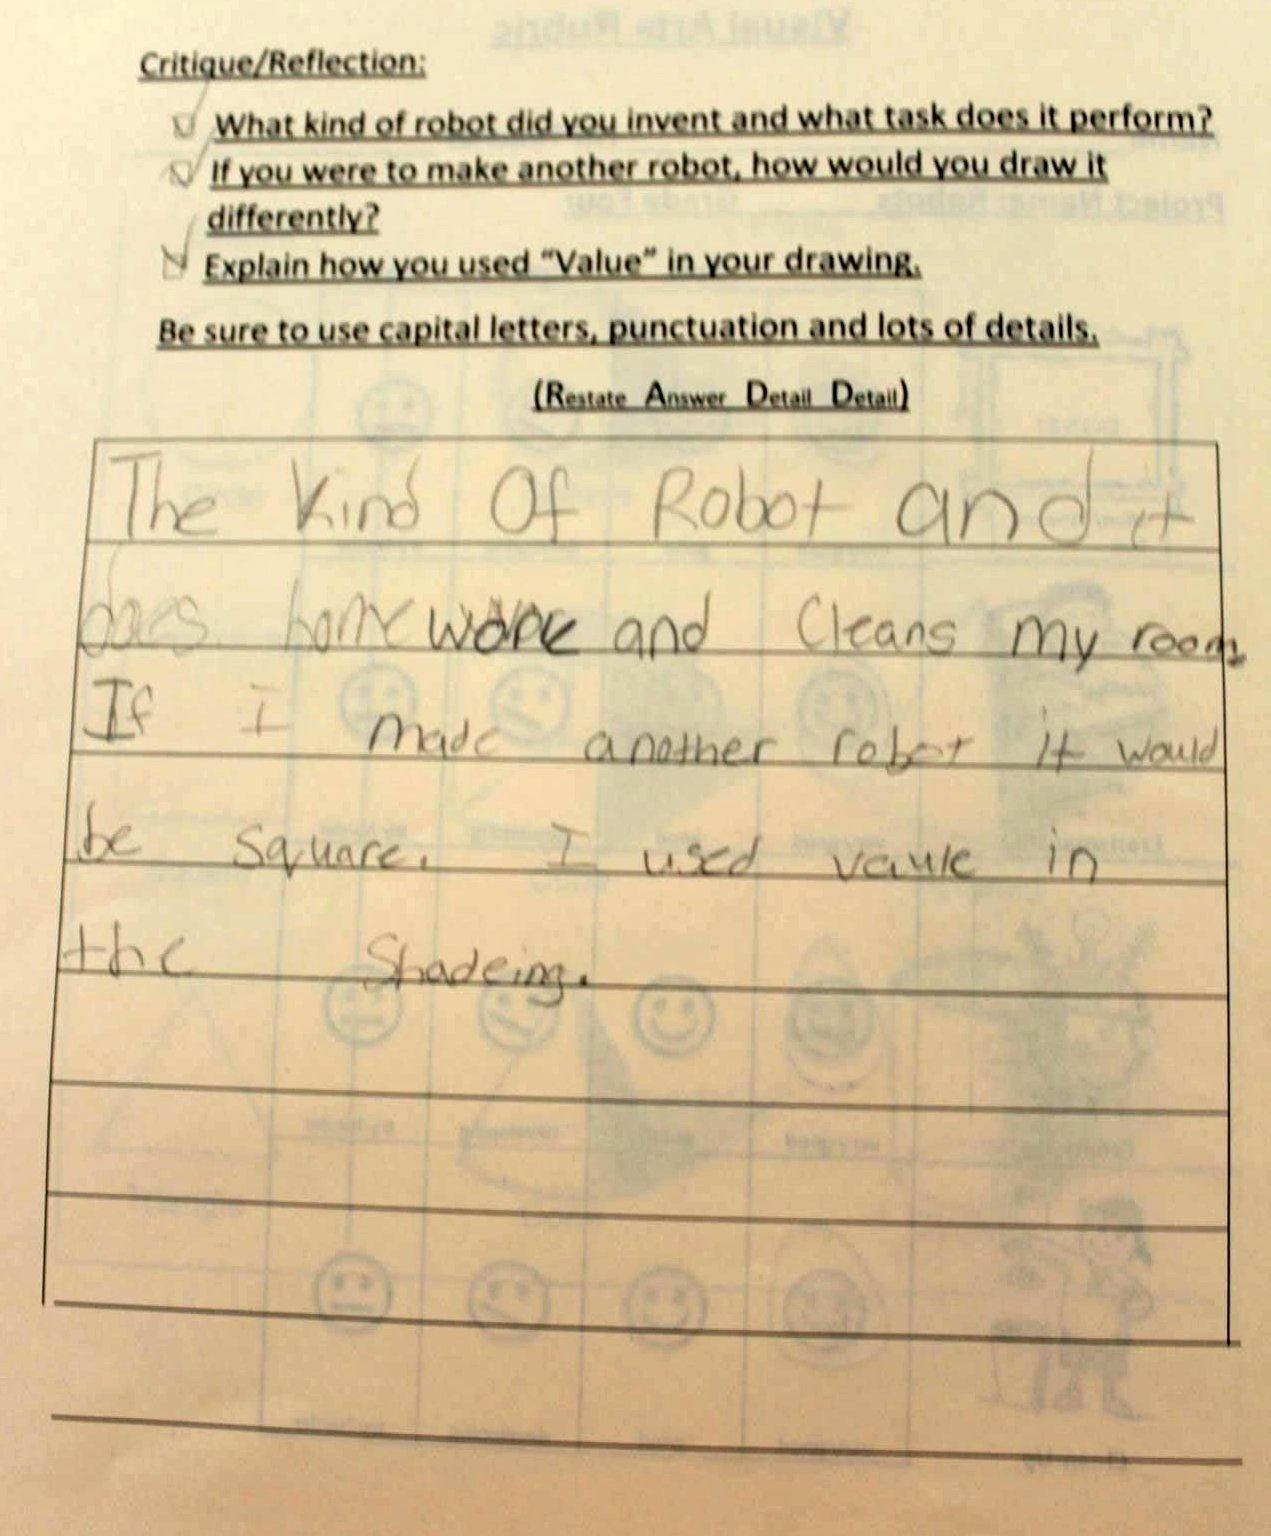 Critique/Reflection:
What kind of robot did you invent and what task does it perform?
If you were to make another robot, how would you draw it
differently?
Explain how you used “Value” in your drawing.
Be sure to use capital letters, punctuation and lots of details.
(Restate Answer Detail Detail)
The Kind Of Robot and it
does home work and Cleans my room.
If I made another robot it would
be square. I used vaule in
the Shadeing.